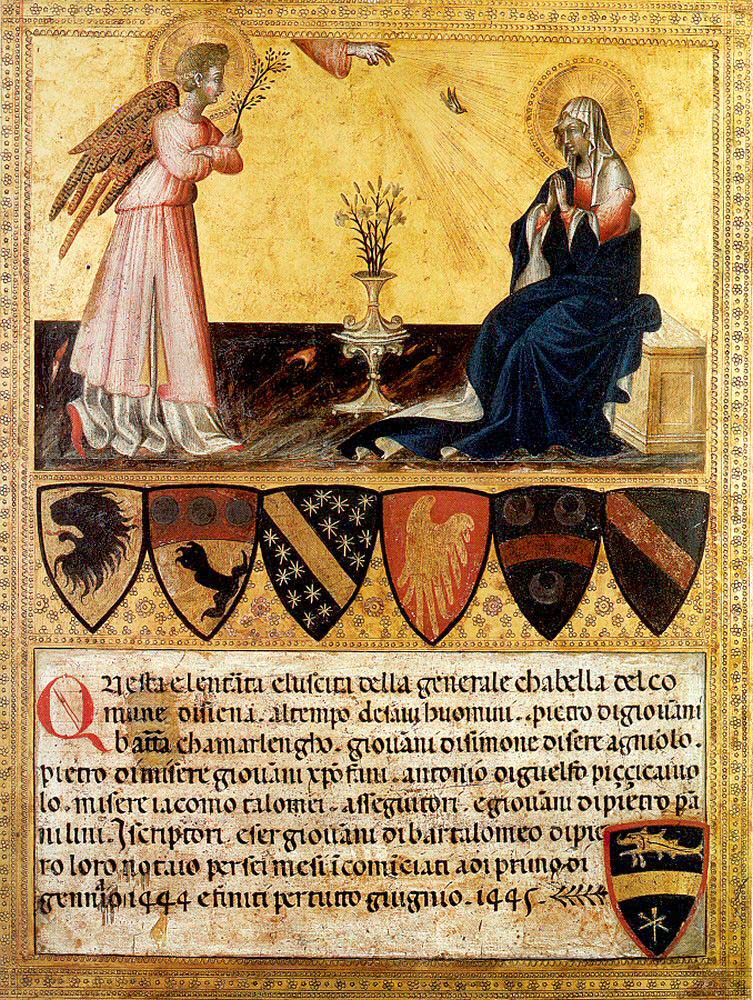 Questa e lentrata e luscita della generale chabella del co
mune disiena. al tempo desavi huomini. pietro digiovani
batta chamarlengho. giovani disimone disere agniolo.
pietro dimisere giovani xpofani. antonio diguelfo piccicauo
lo. misere iacomo talomei. asseguitori. egiovani dipietro pa
nilini. Iscriptori. e ser giovani di bartalomeo dipie
ro loro notaio per sei mesi icominciati adi primo di
gennaio 1444 e finiti per tutto giugnio. 1445.